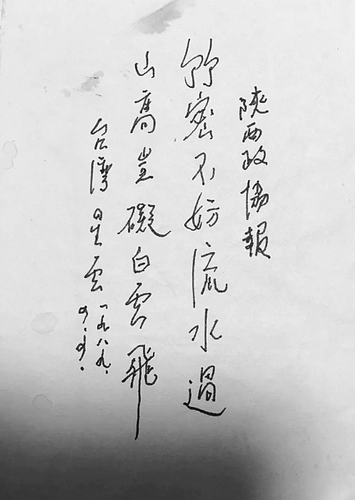 陝西政協報
竹密不妨流水過
山高豈礙白雲飛
台灣星雲 一九八九.
9.9.